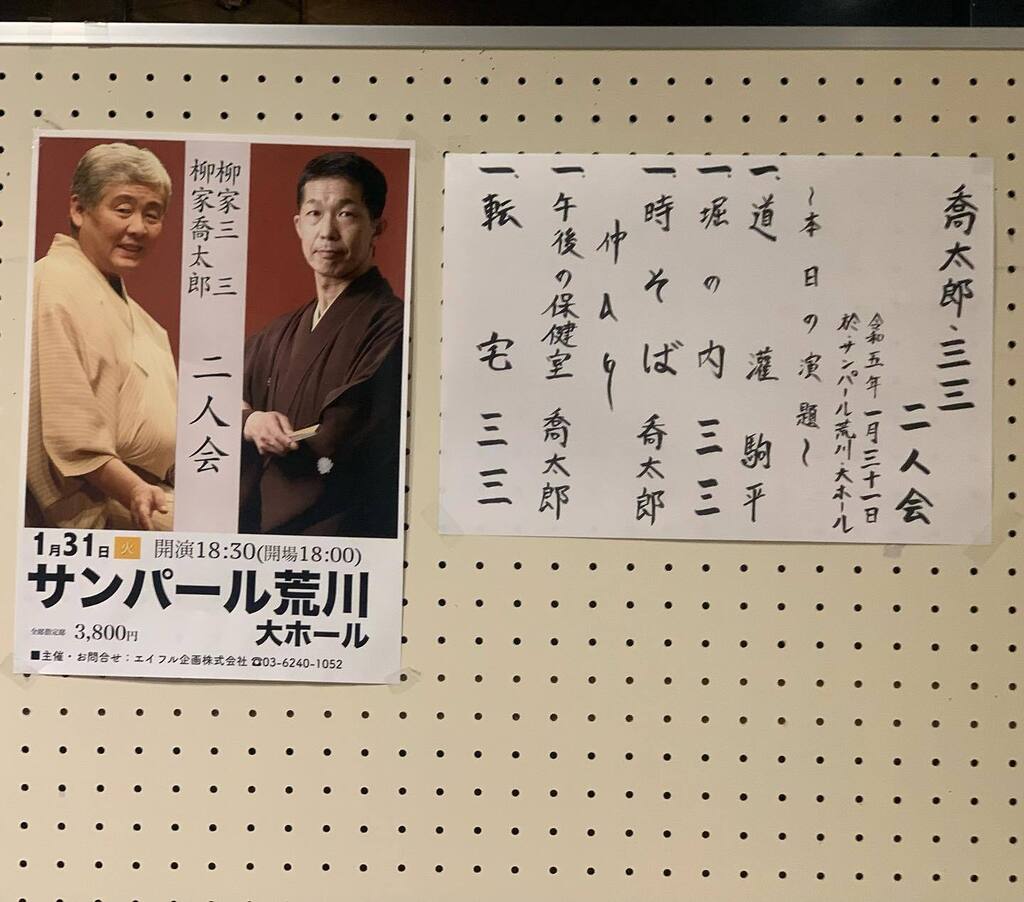 柳家三三
柳家喬太郎
二人会
1月31日 火 開演18:30(開場18:00)
サンパール荒川
大ホール
全席指定席 3,800円
■主催・お問合せ：エイフル企画株式会社 ☎03-6240-1052
喬太郎・三三
二人会
令和五年一月三十一日
於 サンパール荒川・大ホール
～本日の演題～
一、道灌 駒平
一、堀の内 三三
一、時そば 喬太郎
仲入り
一、午後の保健室 喬太郎
一、転宅 三三